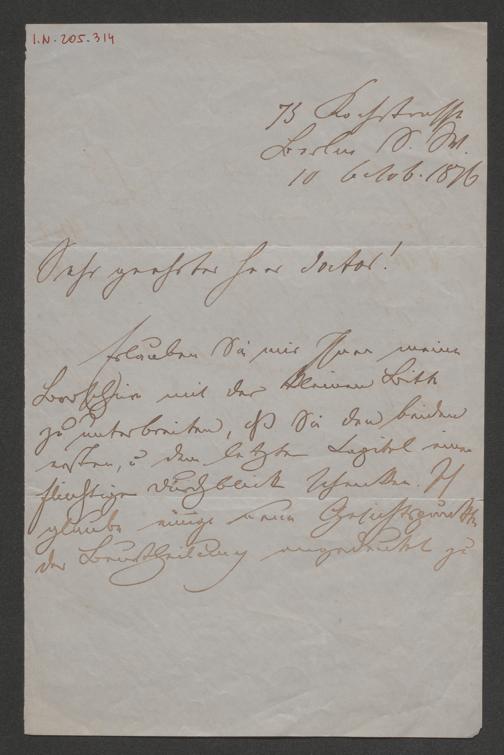 I.N. 205.314
73 Kochstrasse
Berlin S. W.
10 Octob. 1876
Sehr geehrter Herr Doctor!
Erlauben Sie mir Ihnen meine
Borschüre mit der kleinen Bitte
zu unterbreiten, dß Sie den beiden
ersten, u dem letzten Capitel einen
flüchtigen Durchblick schenken. Ich
glaube einige neue Gesichtspunkte
der Beurtheilung angedeutet zu